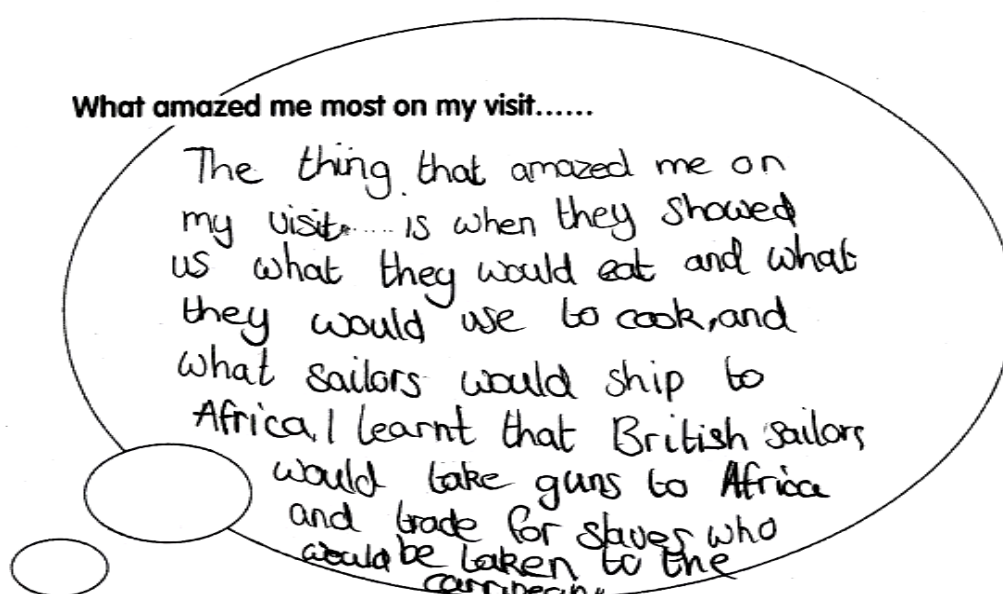 What amazed me most on my visit......
The thing that amazed me on
my visit..... is when they showed
us what they would eat and what
they would use to cook, and
what sailors would ship to
Africa. I learnt that British sailors
would take guns to Africa
and trade for slaves who
would be taken to the
carripean